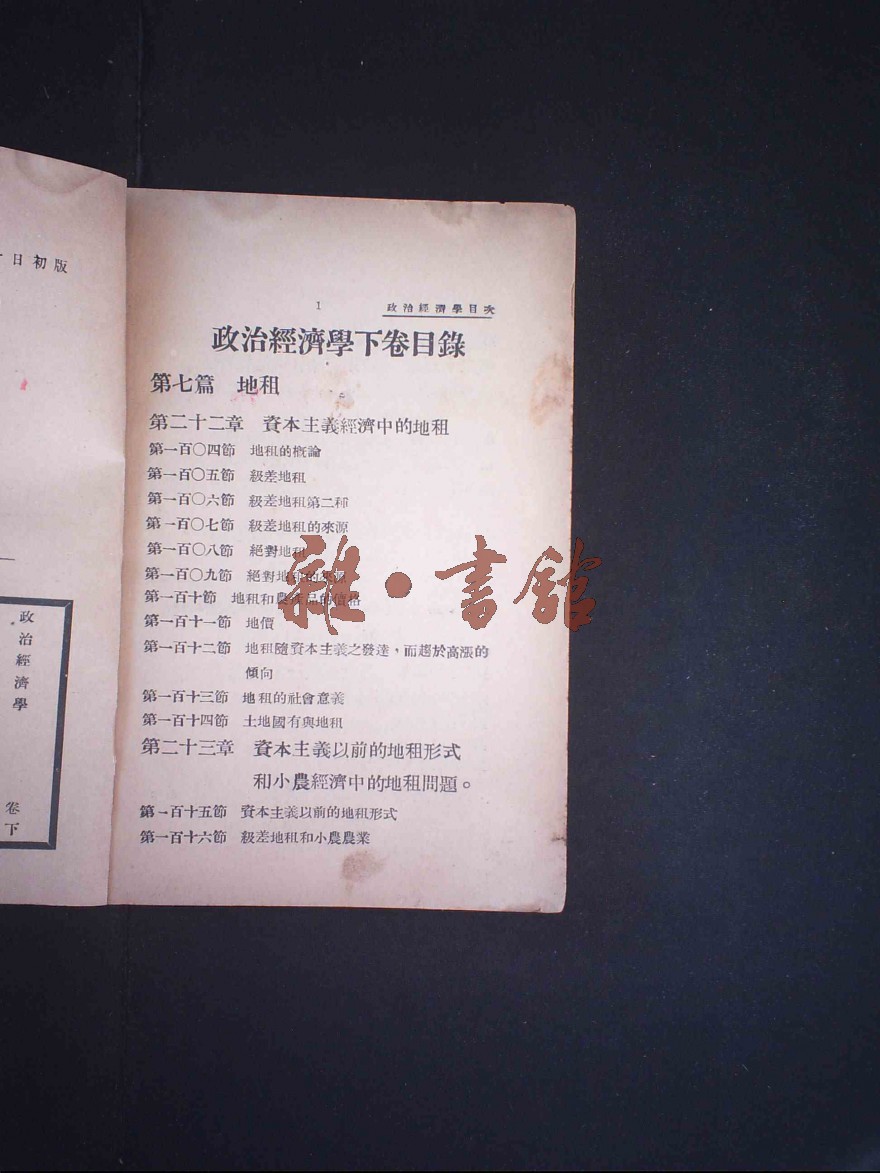 日初版
政治經濟學
卷下
1 政治經濟學目次
政治經濟學下卷目錄
第七篇 地租
第二十二章 資本主義經濟中的地租
第一百〇四節 地租的概論
第一百〇五節 級差地租
第一百〇六節 級差地租第二種
第一百〇七節 級差地租的來源
第一百〇八節 絕對地租
第一百〇九節 絕對地租的來源
第一百十節 地租和農產品的價格
第一百十一節 地價
第一百十二節 地租隨資本主義之發達，而趨於高漲的
傾向
第一百十三節 地租的社會意義
第一百十四節 土地國有與地租
第二十三章 資本主義以前的地租形式
和小農經濟中的地租問題。
第一百十五節 資本主義以前的地租形式
第一百十六節 級差地租和小農農業
雜·書館